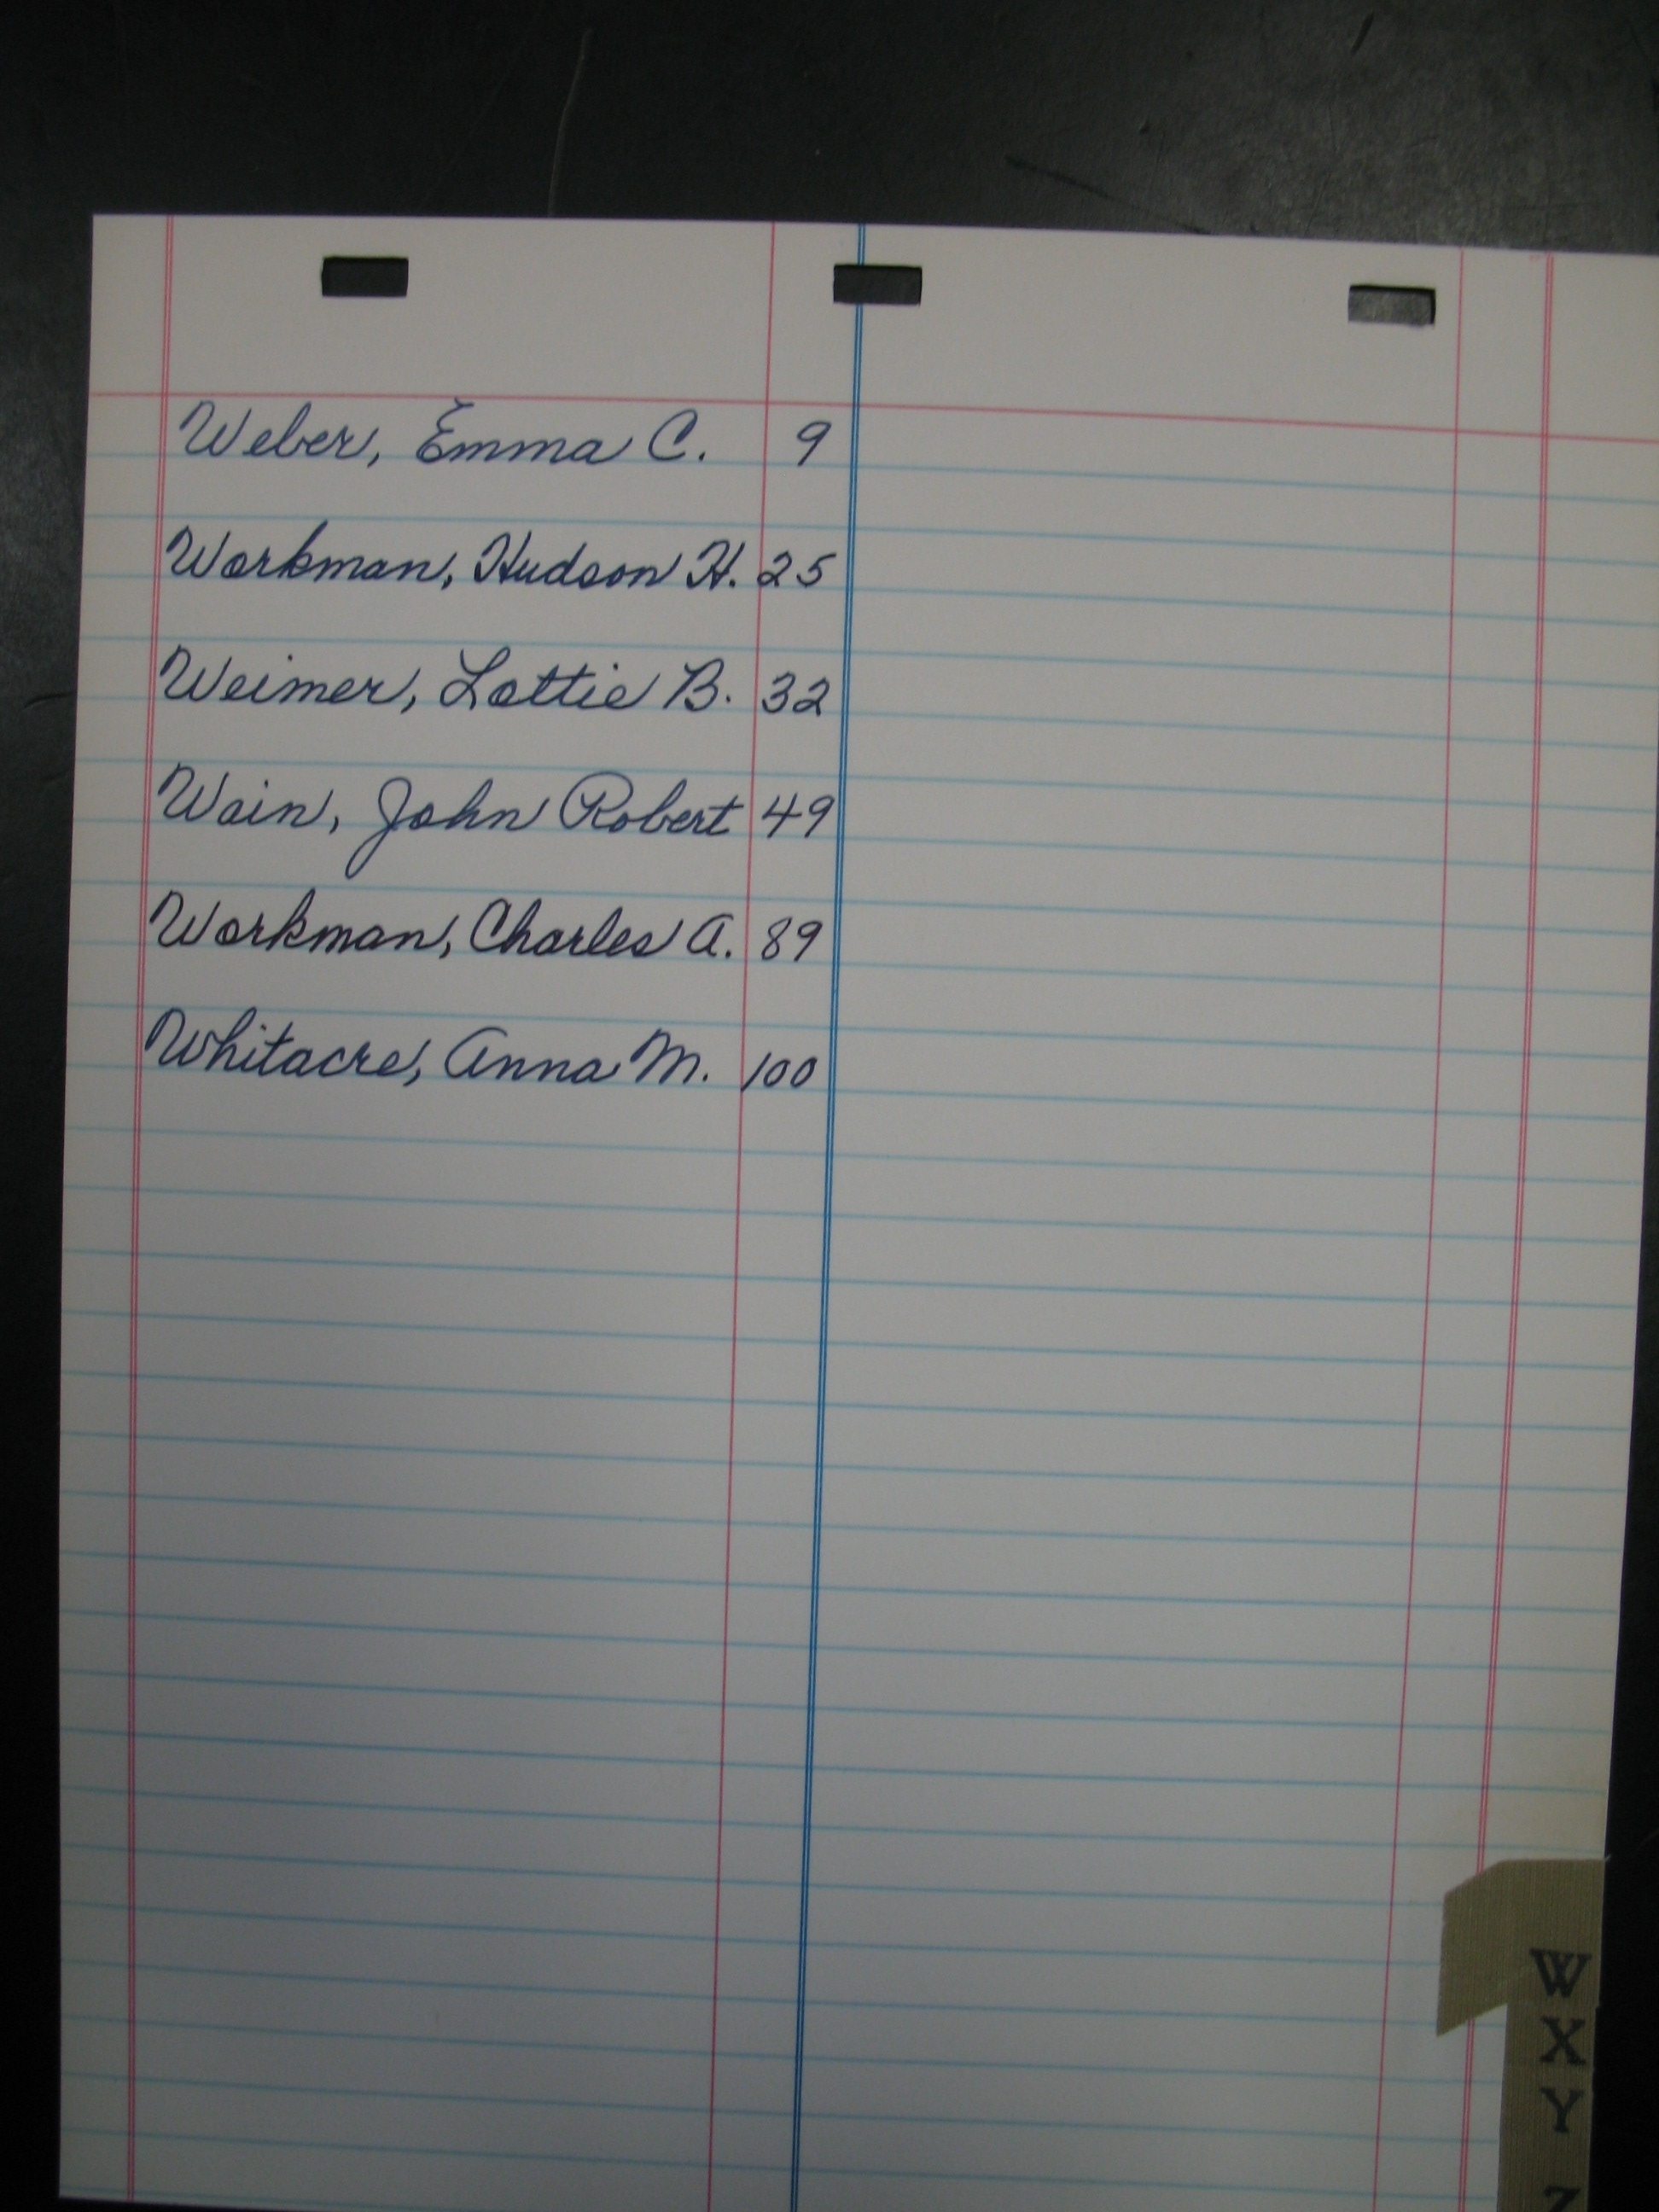 Weber, Emma C. 9
Workman, Hudson H. 25
Weimer, Lottie B. 32
Wain, John Robert 49
Workman, Charles A. 89
Whitacre, Anna M. 100
W
X
Y
Z